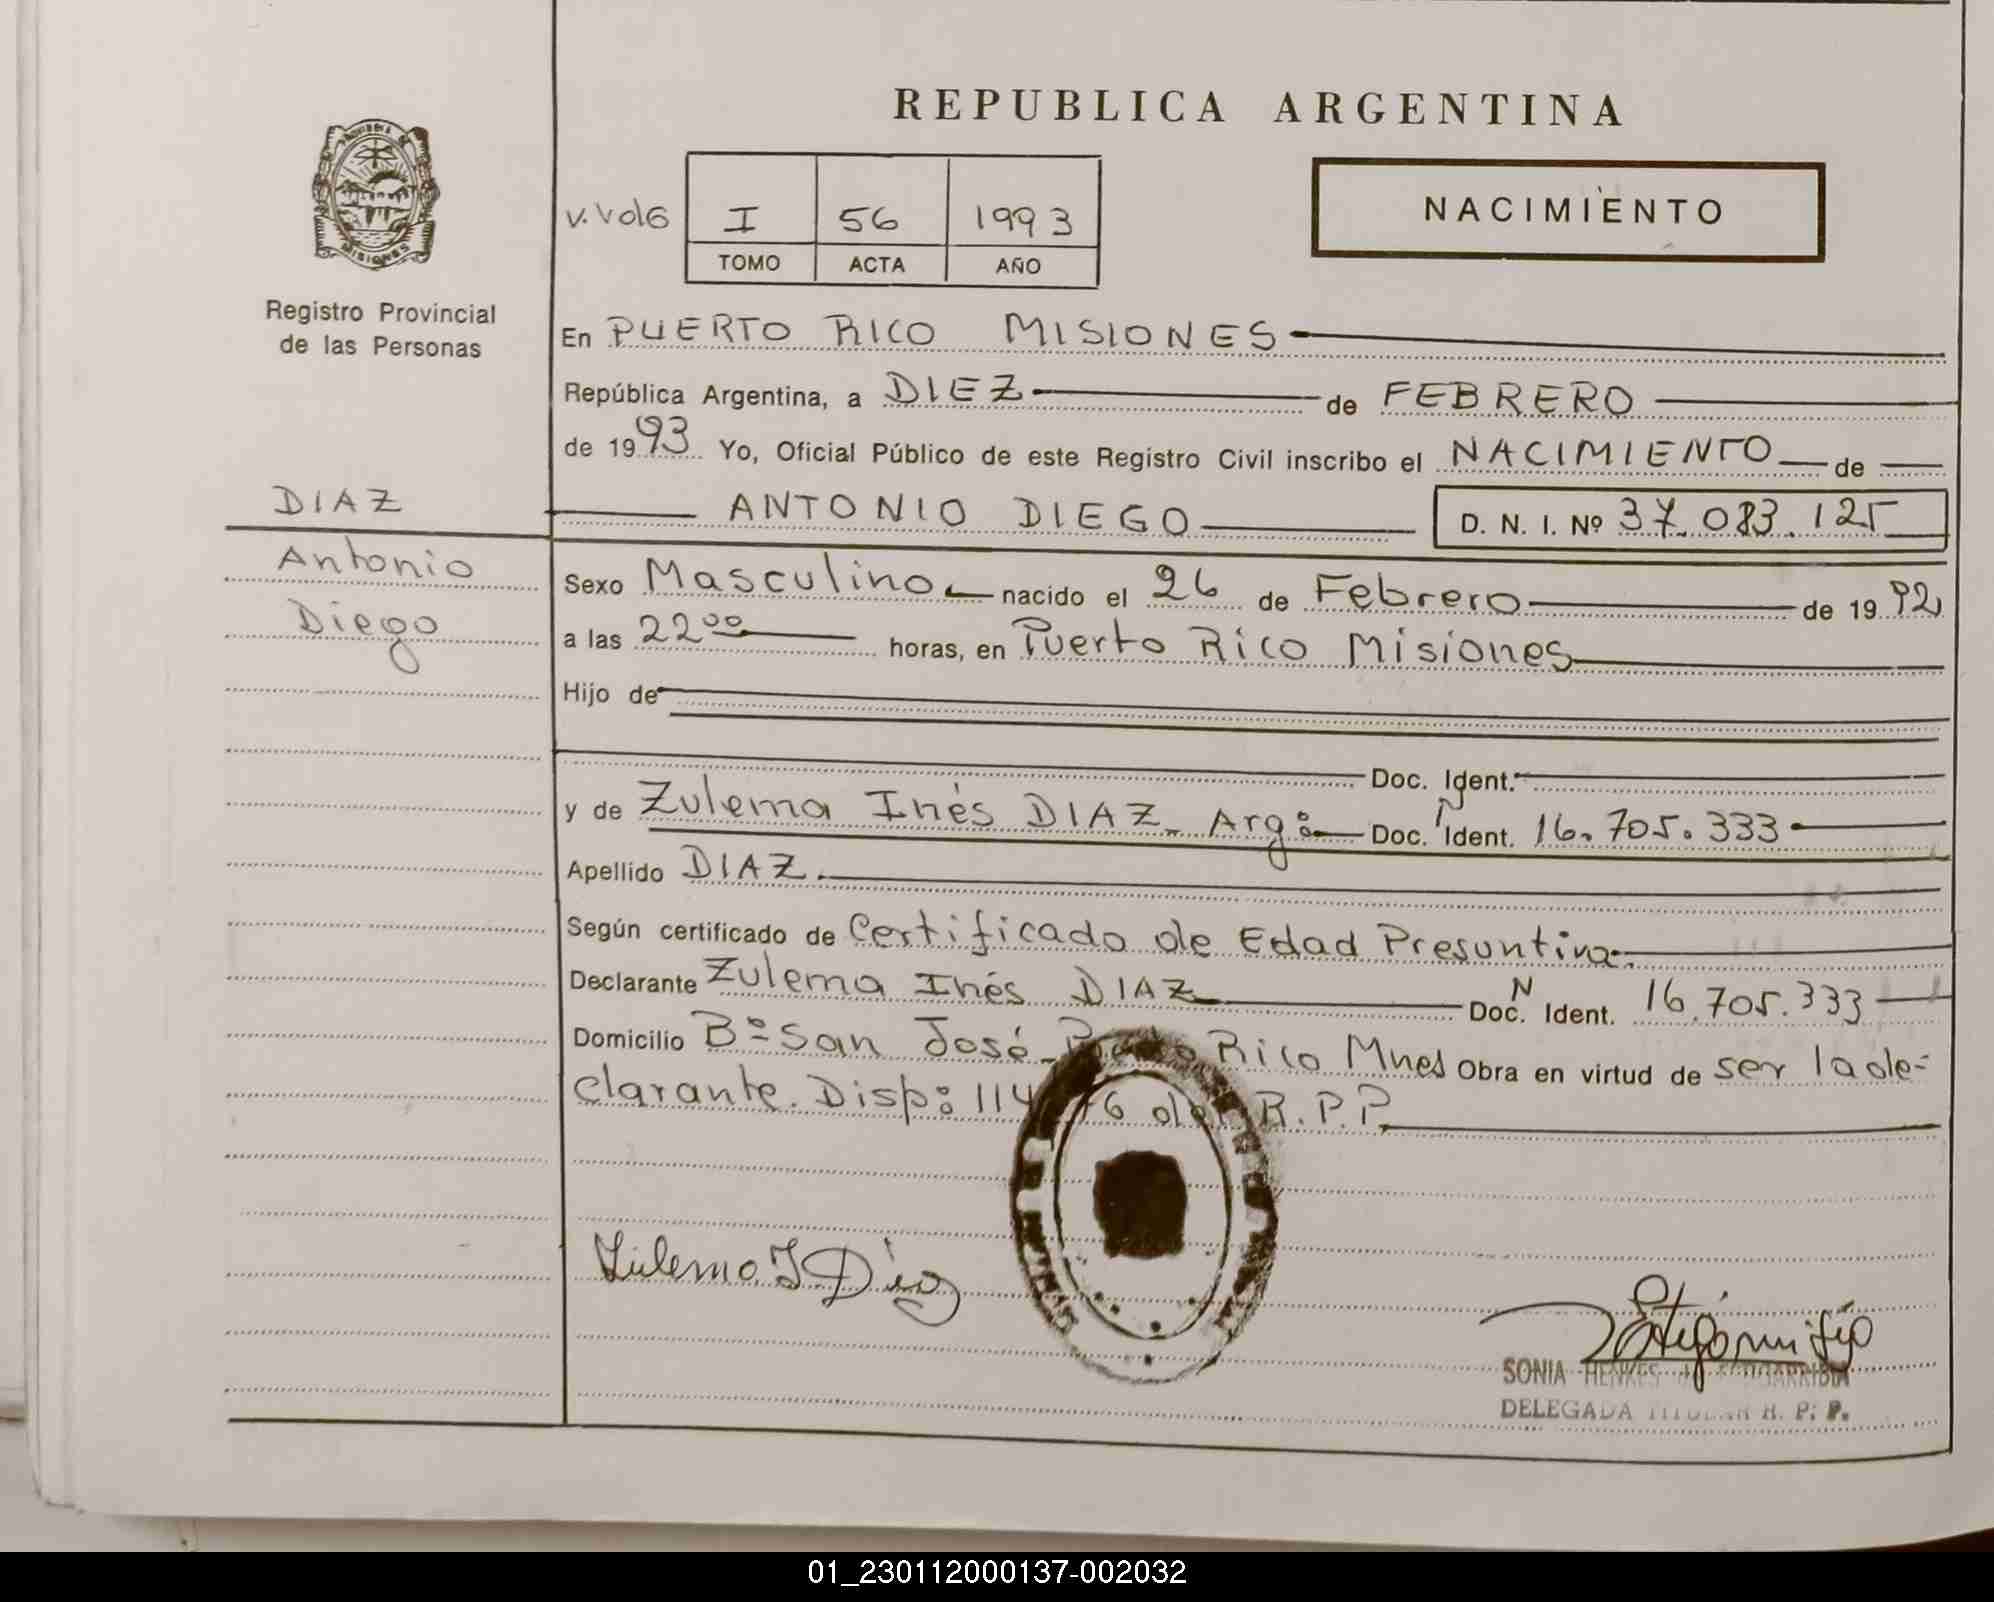 REPUBLICA ARGENTINA
MISIONES
Registro Provincial
de las Personas
V. Vol6 I 56 1993
TOMO ACTA AÑO
NACIMIENTO
En PUERTO RICO MISIONES
República Argentina, a DIEZ de FEBRERO
de 1993 Yo, Oficial Público de este Registro Civil inscribo el NACIMIENTO de
DIAZ
ANTONIO DIEGO D. N. I. Nº 37.083.125
Antonio
Diego
Sexo Masculino nacido el 26 de Febrero de 1992
a las 22⁰⁰ horas, en Puerto Rico Misiones
Hijo de
Doc. Ident.
y de Zulema Inés DIAZ Arg: Doc. N Ident. 16.705.333
Apellido DIAZ
Según certificado de Certificado de Edad Presuntiva
Declarante Zulema Inés DIAZ Doc. N Ident. 16.705.333
Domicilio Bº San José Puerto Rico Mnes Obra en virtud de ser la de-
clarante. Disp: 114 del R.P.P.
Zulema I Diaz
SONIA HENKES
DELEGADA TITULAR R. P. P.
01_230112000137-002032